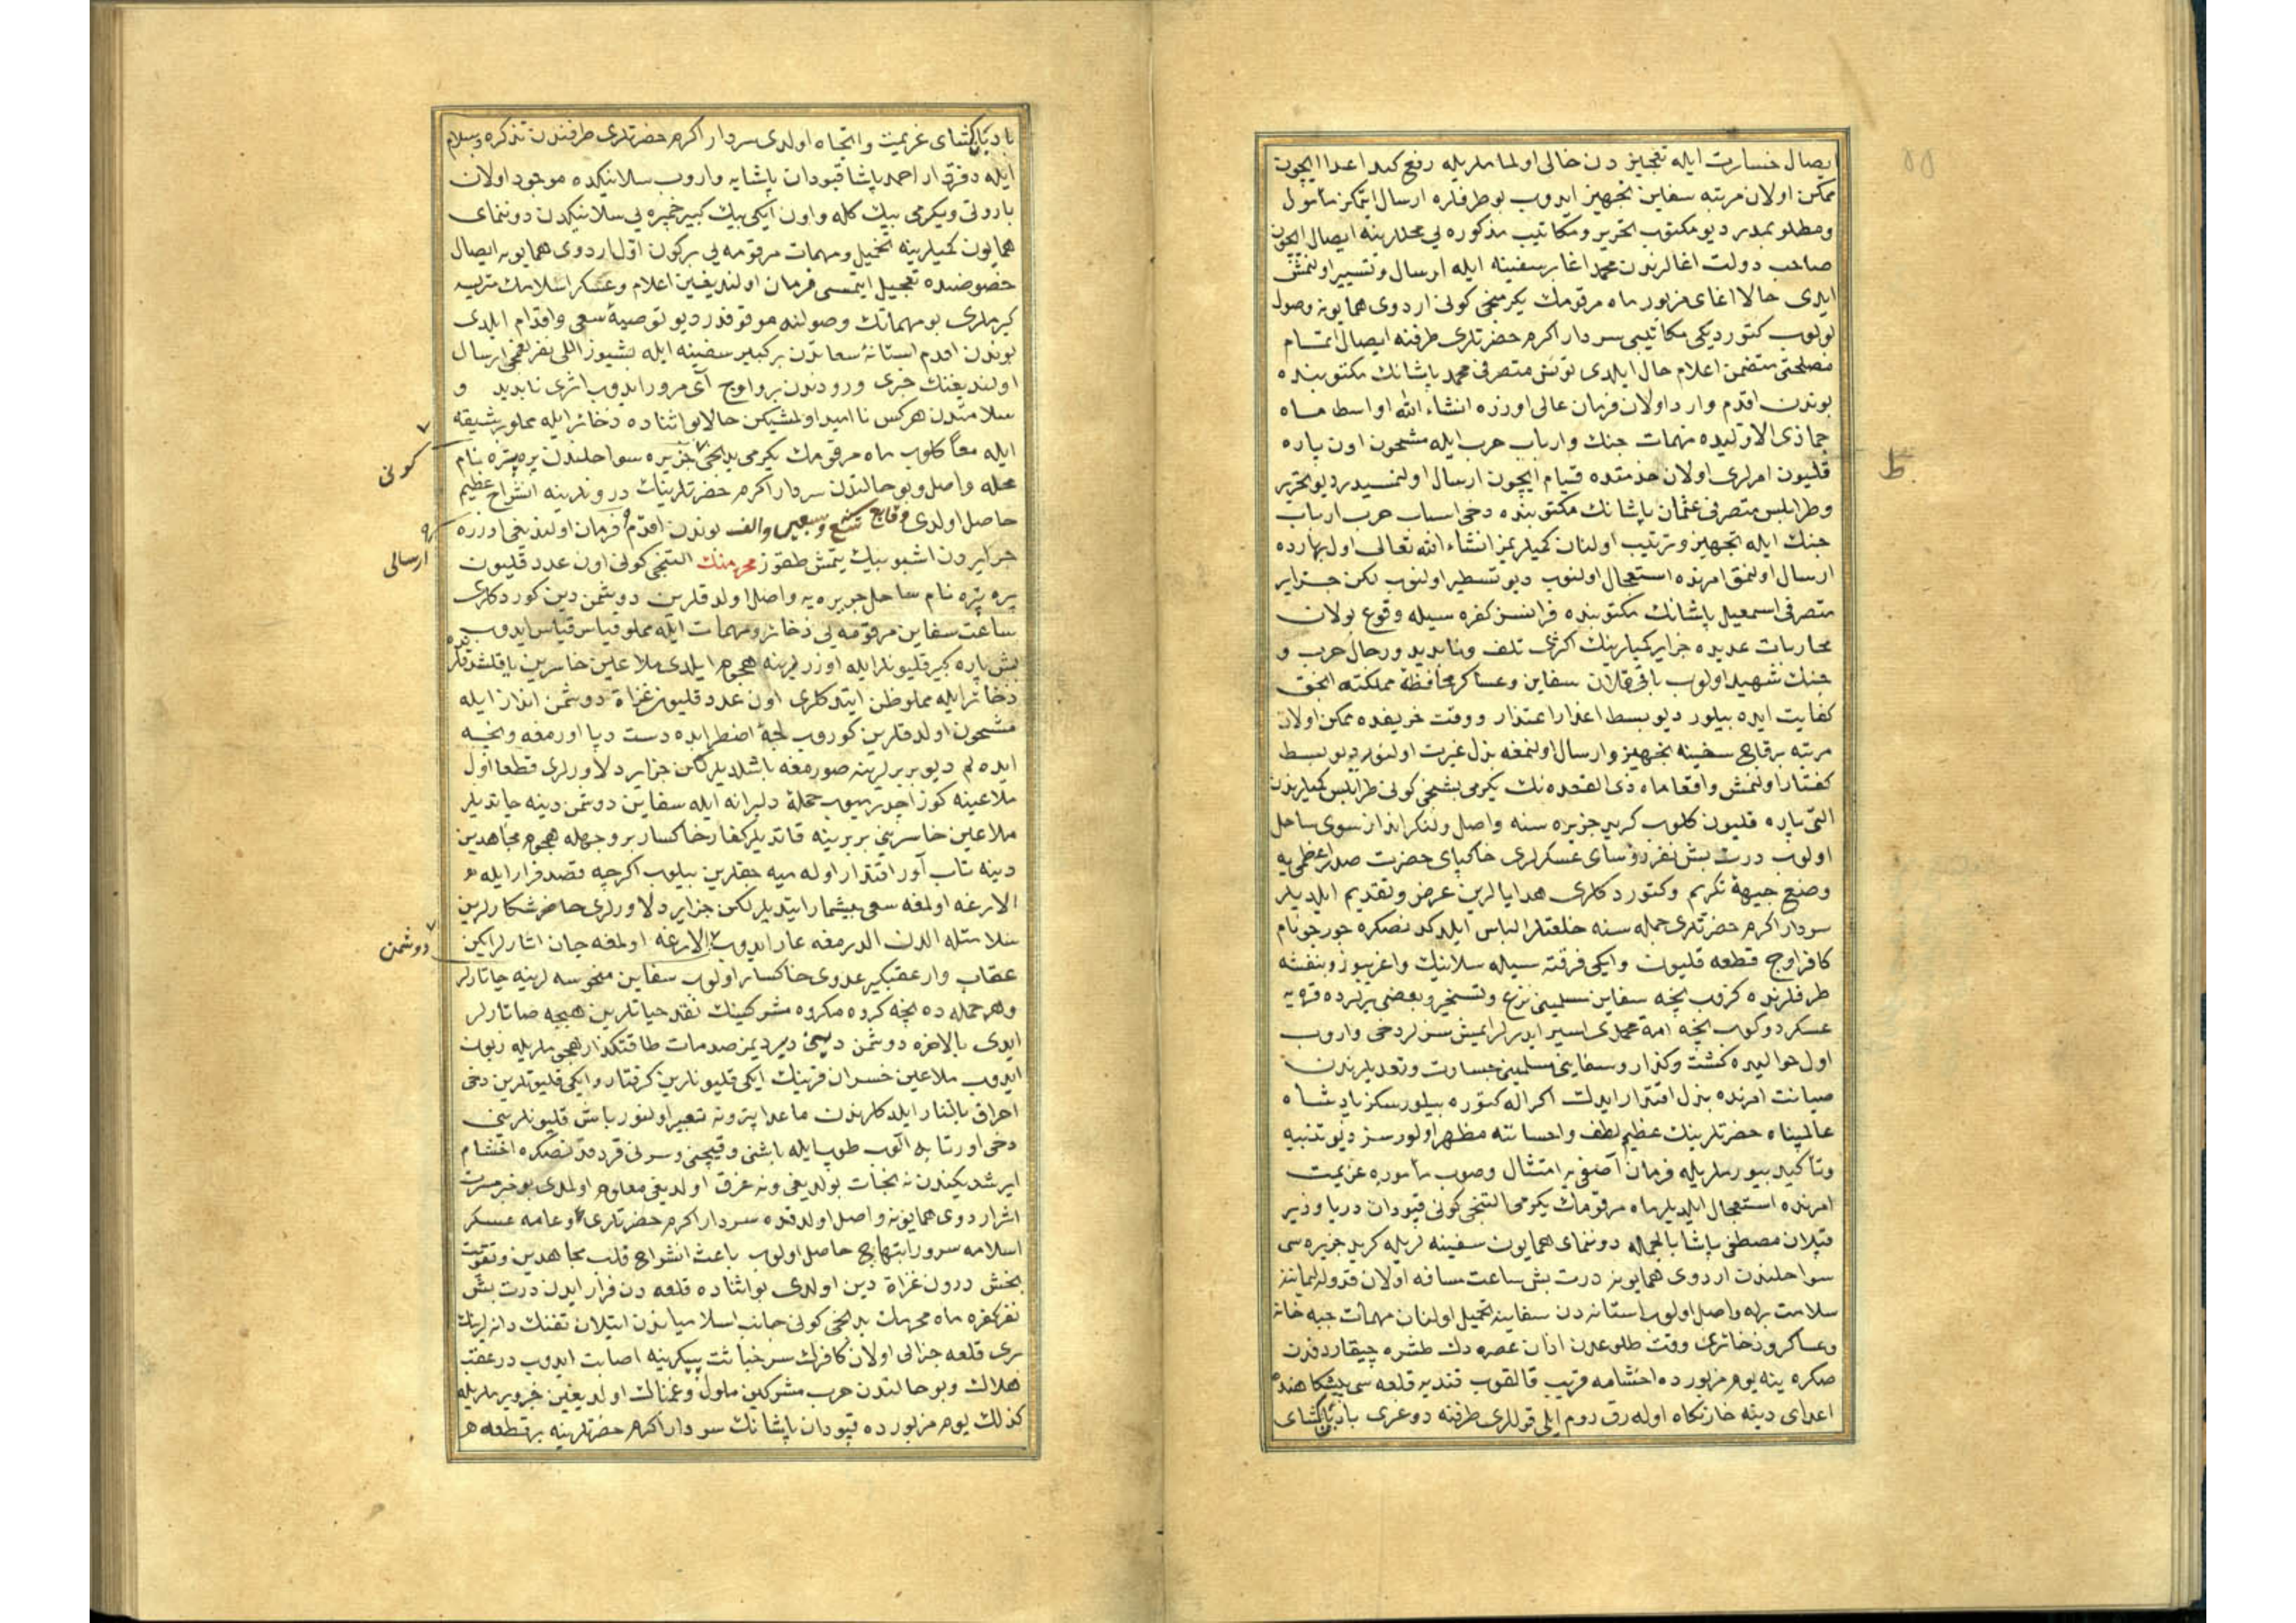 ايصال خسارت ايله تعجيز دن خالى اولماملريله رفع كيد اعدا ايچون
ممكن اولان مرتبه سفاين تجهيز ايدوب بو طرفلره ارسال ايتمكز مأمول
ومطلوبمدر ديو مكتوب تحرير ومكاتيب مذكوره يى محللرينه ايصال ايچون
صاحب دولت اغالرندن محمد اغا بر سفينه ايله ارسال وتسيير اولنمش
ايدى حالا اغاى مزبور ماه مرقومك يكرمنجى كونى اردوى همايونه وصول
بولوب كتورديكى مكاتيبى سردار اكرم حضرتلرى طرفنه ايصال اتمام
مصلحتى متضمن اعلام حال ايلدى تونس متصرفى محمد پاشانك مكتوبنده
بوندن اقدم وارد اولان فرمان عالى اوزره انشاء الله اواسط ماه
جماذى الاوليده مهمات جنك وارباب حرب ايله مشحون اون پاره
قليون امرلرى اولان خدمتده قيام ايچون ارسال اولنمسيدر ديو تحرير
وطرابلس متصرفى عثمان پاشانك مكتوبنده دخى اسباب حرب ارباب
جنك ايله تجهيز وترتيب اولنان كميلريمز انشاء الله تعالى اول بهارده
ارسال اولنمق امرنده استعجال اولنوب ديو تسطير اولنوب لكن جزاير
متصرفى اسمعيل پاشانك مكتوبنده فرانسز كفره سيله وقوع بولان
محاربات عديده جزاير كميلرينك اكثرى تلف ونابديد ورجال حرب و
جنك شهيد اولوب باقى قلان سفاين وعساكر محافظة مملكته انجق
كفايت ايده بيلور ديو بسط اعذار اعتذار ووقت خريفده ممكن اولان
مرتبه برقاج سفينه تجهيز وارسال اولنمغه بذل غيرت اولنور ديو بسط
كفتار اولنمش واقعا ماه ذى القعده نك يكرمى بشنجى كونى طرابلس كميلرندن
التى پاره قليون كلوب كريد جزيره سنه واصل ولنكر انداز سوى ساحل
اولوب درت بش نفر رؤساى عسكرلرى خاكپاى حضرت صدر اعظمى يه
وضع جبهۀ تكريم وكتوردكلرى هدايالرين عرض وتقديم ايلديلر
سردار اكرم حضرتلرى جمله سنه خلعتلر الباس ايلدكدنصكره جورجو نام
كافر اوج قطعه قليون وايكى فرقته سيله سلانيك واغريبوز وبنفشه
طرفلرنده كزوب نيجه سفاين مسلمينى نزع وتسخير وبعضى يرلرده قره يه
عسكر دوكوب نيجه امة محمدى اسير ايدرلر ايمش سز لر دخى واروب
اول حواليده كشت وكذار وسفاين مسلمينى خسارت وتعديلرندن
صيانت امرنده بذل اقتدار ايدك اكر اله كتوره بيلورسكز پادشاه
عالمپناه حضرتلرينك عظيم لطف واحساننه مظهر اولورسز ديو تنبيه
وتأكيد بيورملريله فرمان آصفى يه امتثال وصوب مأموره عزيمت
امرنده استعجال ايلديلر ماه مرقومك يكرمى التنجى كونى قپودان دريا وزير
قپلان مصطفى پاشا بالجمله دوننماى همايون سفينه لريله كريد جزيره سى
سواحلندن اردوى همايونه درت بش ساعت مسافه اولان فدوله ليماننه
سلامت يله واصل اولوب استانه دن سفاينه تحميل اولنان مهمات جبه خانه
وعساكر وذخائرى وقت طلوعدن اذان عصره دك طشره چيقاردقدن
صكره ينه يوم مزبورده اخشامه قريب قالقوب قنديه قلعه سى پيشكاهنده
اعداى دينه خارنكاه اوله رق روم ايلى قوللرى طرفنه دوغرى بادبانكشاى
بادبانكشاى عزيمت واتجاه اولدى سردار اكرم حضرتلرى طرفندن تذكره وسلام
ايله دفتردار احمد پاشا قپودان پاشايه واروب سلانيكده موجود اولان
باروتى ويكرمى بيك كله واون ايكى بيك كبير خمبره يى سلانيكدن دوننماى
همايون كميلرينه تحميل ومهمات مرقومه يى بركون اول اردوى همايونه ايصال
خصوصنده تعجيل ايتمسى فرمان اولنديغين اعلام وعسكر اسلامك متريسه
كيرملرى بو مهماتك وصولنه موقوفدر ديو توصيۀ سعى واقدام ايلدى
بوندن اقدم استانۀ سعادتدن بر كبير سفينه ايله بشيوز اللى نفر لغمجى ارسال
اولنديغنك خبرى ورودندن بر واوج آى مرور ايدوب اثرى نابديد و
سلامتدن هركس نااميد اولمشيكن حالا بو اثناده ذخائر ايله مملو بر شيقه
ايله معا كلوب ماه مرقومك يكرمى يدنجى جزيره سواحلندن پره پتره نام
كونى
محله واصل وبو حالتدن سردار اكرم حضرتلرينك درونلرينه انشراح عظيم
حاصل اولدى وقايع تسع وسبعين والف بوندن اقدم فرمان اولنديغى اوزره
ارسالى
جزايردن اشبو بيك يتمش طقوز محرمنك التنجى كونى اون عدد قليون
پره پتره نام ساحل جزيره يه واصل اولدقلرين دوشمن دين كوردكلرى
ساعت سفاين مرقومه يى ذخائر ومهمات ايله مملو قياس ايدوب
بش پاره كبير قليونلر ايله اوزرلرينه هجوم ايلدى ملاعين خاسرين ياقلشدقلرنده
ذخائر ايله مملو ظن ايتدكلرى اون عدد قليون غزاة دوشمن انداز ايله
مشحون اولدقلرين كوروب لجۀ اضطرابده دست وپا اورمغه ونيجه
ايده لم ديو بربرلرينه صورمغه باشلديلر لكن جزاير دلاورلرى قطعا اول
ملاعينه كوز اچدرميوب حملۀ دليرانه ايله سفاين دوشمن دينه چاتديلر
ملاعين خاسرينى بربرينه قاتديلر كفار خاكسار بر وجهله هجوم مجاهدين
دينه تاب آور اقتدار اوله ميه جقلرين بيلوب اكرچه قصد فرار ايله
الارغه اولمغه سعى بيشمار ايتديلر لكن جزاير دلاورلرى حاضر شكارلرين
سلامتله الدن الديرمغه عار ايدوب الارغه اولمغه جان اتارلر ايكن
دوشمن
عقاب وار عقبكير عدوى خاكسار اولوب سفاين منحوسه لرينه چاتارلر
وهر حمله ده نيجه كروه مكروه مشركينك نقد حياتلرين هيچه صاتارلر
ايدى بالاخره دوشمن دينى ديرديمز صدمات طاقتكذار هجوملريله زبون
ايدوب ملاعين خسران قرينك ايكى قليونلرين كرفتار وايكى قليونلرين دخى
احراق بالنار ايلدكلرندن ماعدا پترونه تعبير اولنور باش قليونلرينى
دخى اورتايه آلوب طوپ ايله باشنى وقيچنى وسرنى قردقدنصكره اخشام
ايرشديكندن نه نجات بولديغى ونه غرق اولديغى معلوم اولمدى بو خبر مسرت
اثر اردوى همايونه واصل اولدقده سردار اكرم حضرتلرى وعامه عسكر
اسلامه سرور ابتهاج حاصل اولوب باعث انشراح قلب مجاهدين وتقويت
بخش درون غزاة دين اولدى بو اثناده قلعه دن فرار ايدن درت بش
نفر كفره ماه محرمك يدنجى كونى جانب اسلاميانندن اتيلان تفنك دانه لرينك
برى قلعه جنرالى اولان كافرك سر خباثت پيكرينه اصابت ايدوب در عقب
هلاك وبو حالتدن حرب مشركين ملول وغمناك اولديغين خبر ويرملريله
كذلك يوم مزبورده قپودان پاشانك سردار اكرم حضرتلرينه بر قطعه